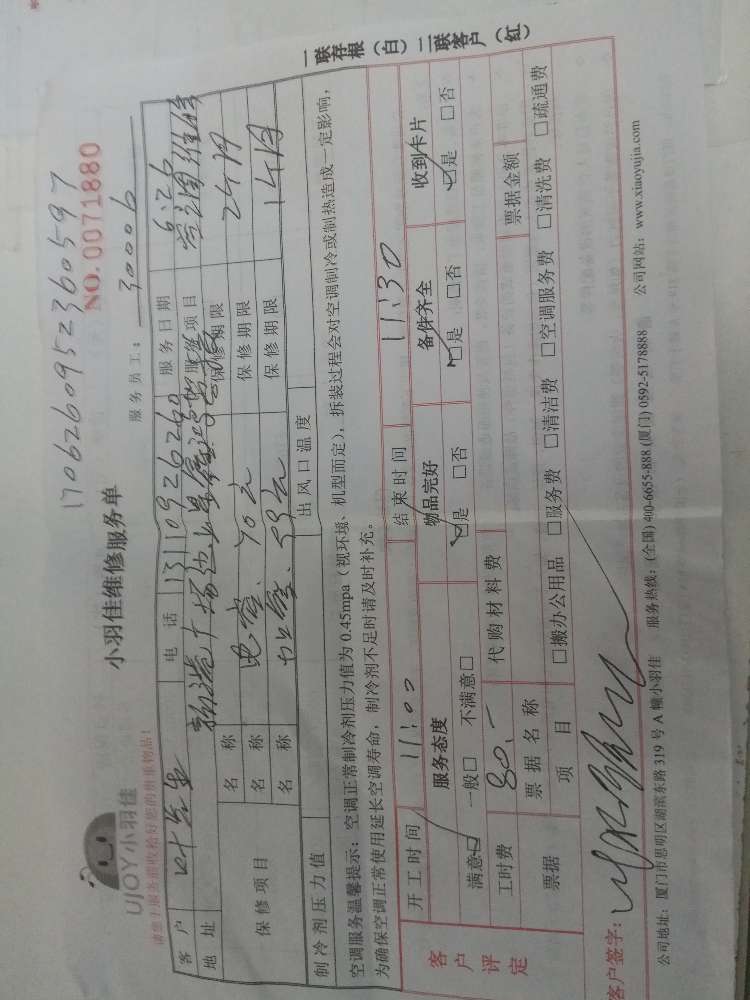 1706260952360597
NO. 0071880
UJOY小羽佳
小羽佳维修服务单
服务员工： 30006
客户 电话 13110926260 服务日期 6.26
地址 服务项目
保修项目 名称 保修期限
名称 70元 保修期限 24H
名称 保修期限 14H
制冷剂压力值 出风口温度
空调服务温馨提示：空调正常制冷剂压力值为 0.45mpa（视环境、机型而定），拆装过程会对空调制冷或制热造成一定影响，
为确保空调正常使用延长空调寿命，制冷剂不足时请及时补充。
一联存根（白）二联客户（红）
开工时间 11:00 结束时间 11:30
客户评定 服务态度 物品完好 备件齐全 收到卡片
满意☑ 一般□ 不满意□ ☑是 □否 ☑是 □否 ☑是 □否
工时费 80.- 代购材料费 票据金额
票据 票据名称
项目 □搬办公用品 □服务费 □清洁费 □空调服务费 □清洗费 □疏通费
客户签字：
公司地址：厦门市思明区湖滨东路 319 号 A 幢小羽佳 服务热线：(全国) 400-6655-888 (厦门) 0592-5178888 公司网站：www.xiaoyujia.com